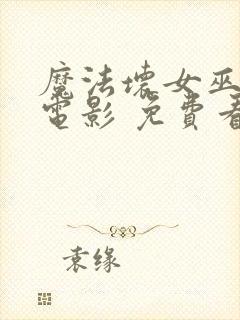 魔法壞女巫
電影 免費看
袁缘